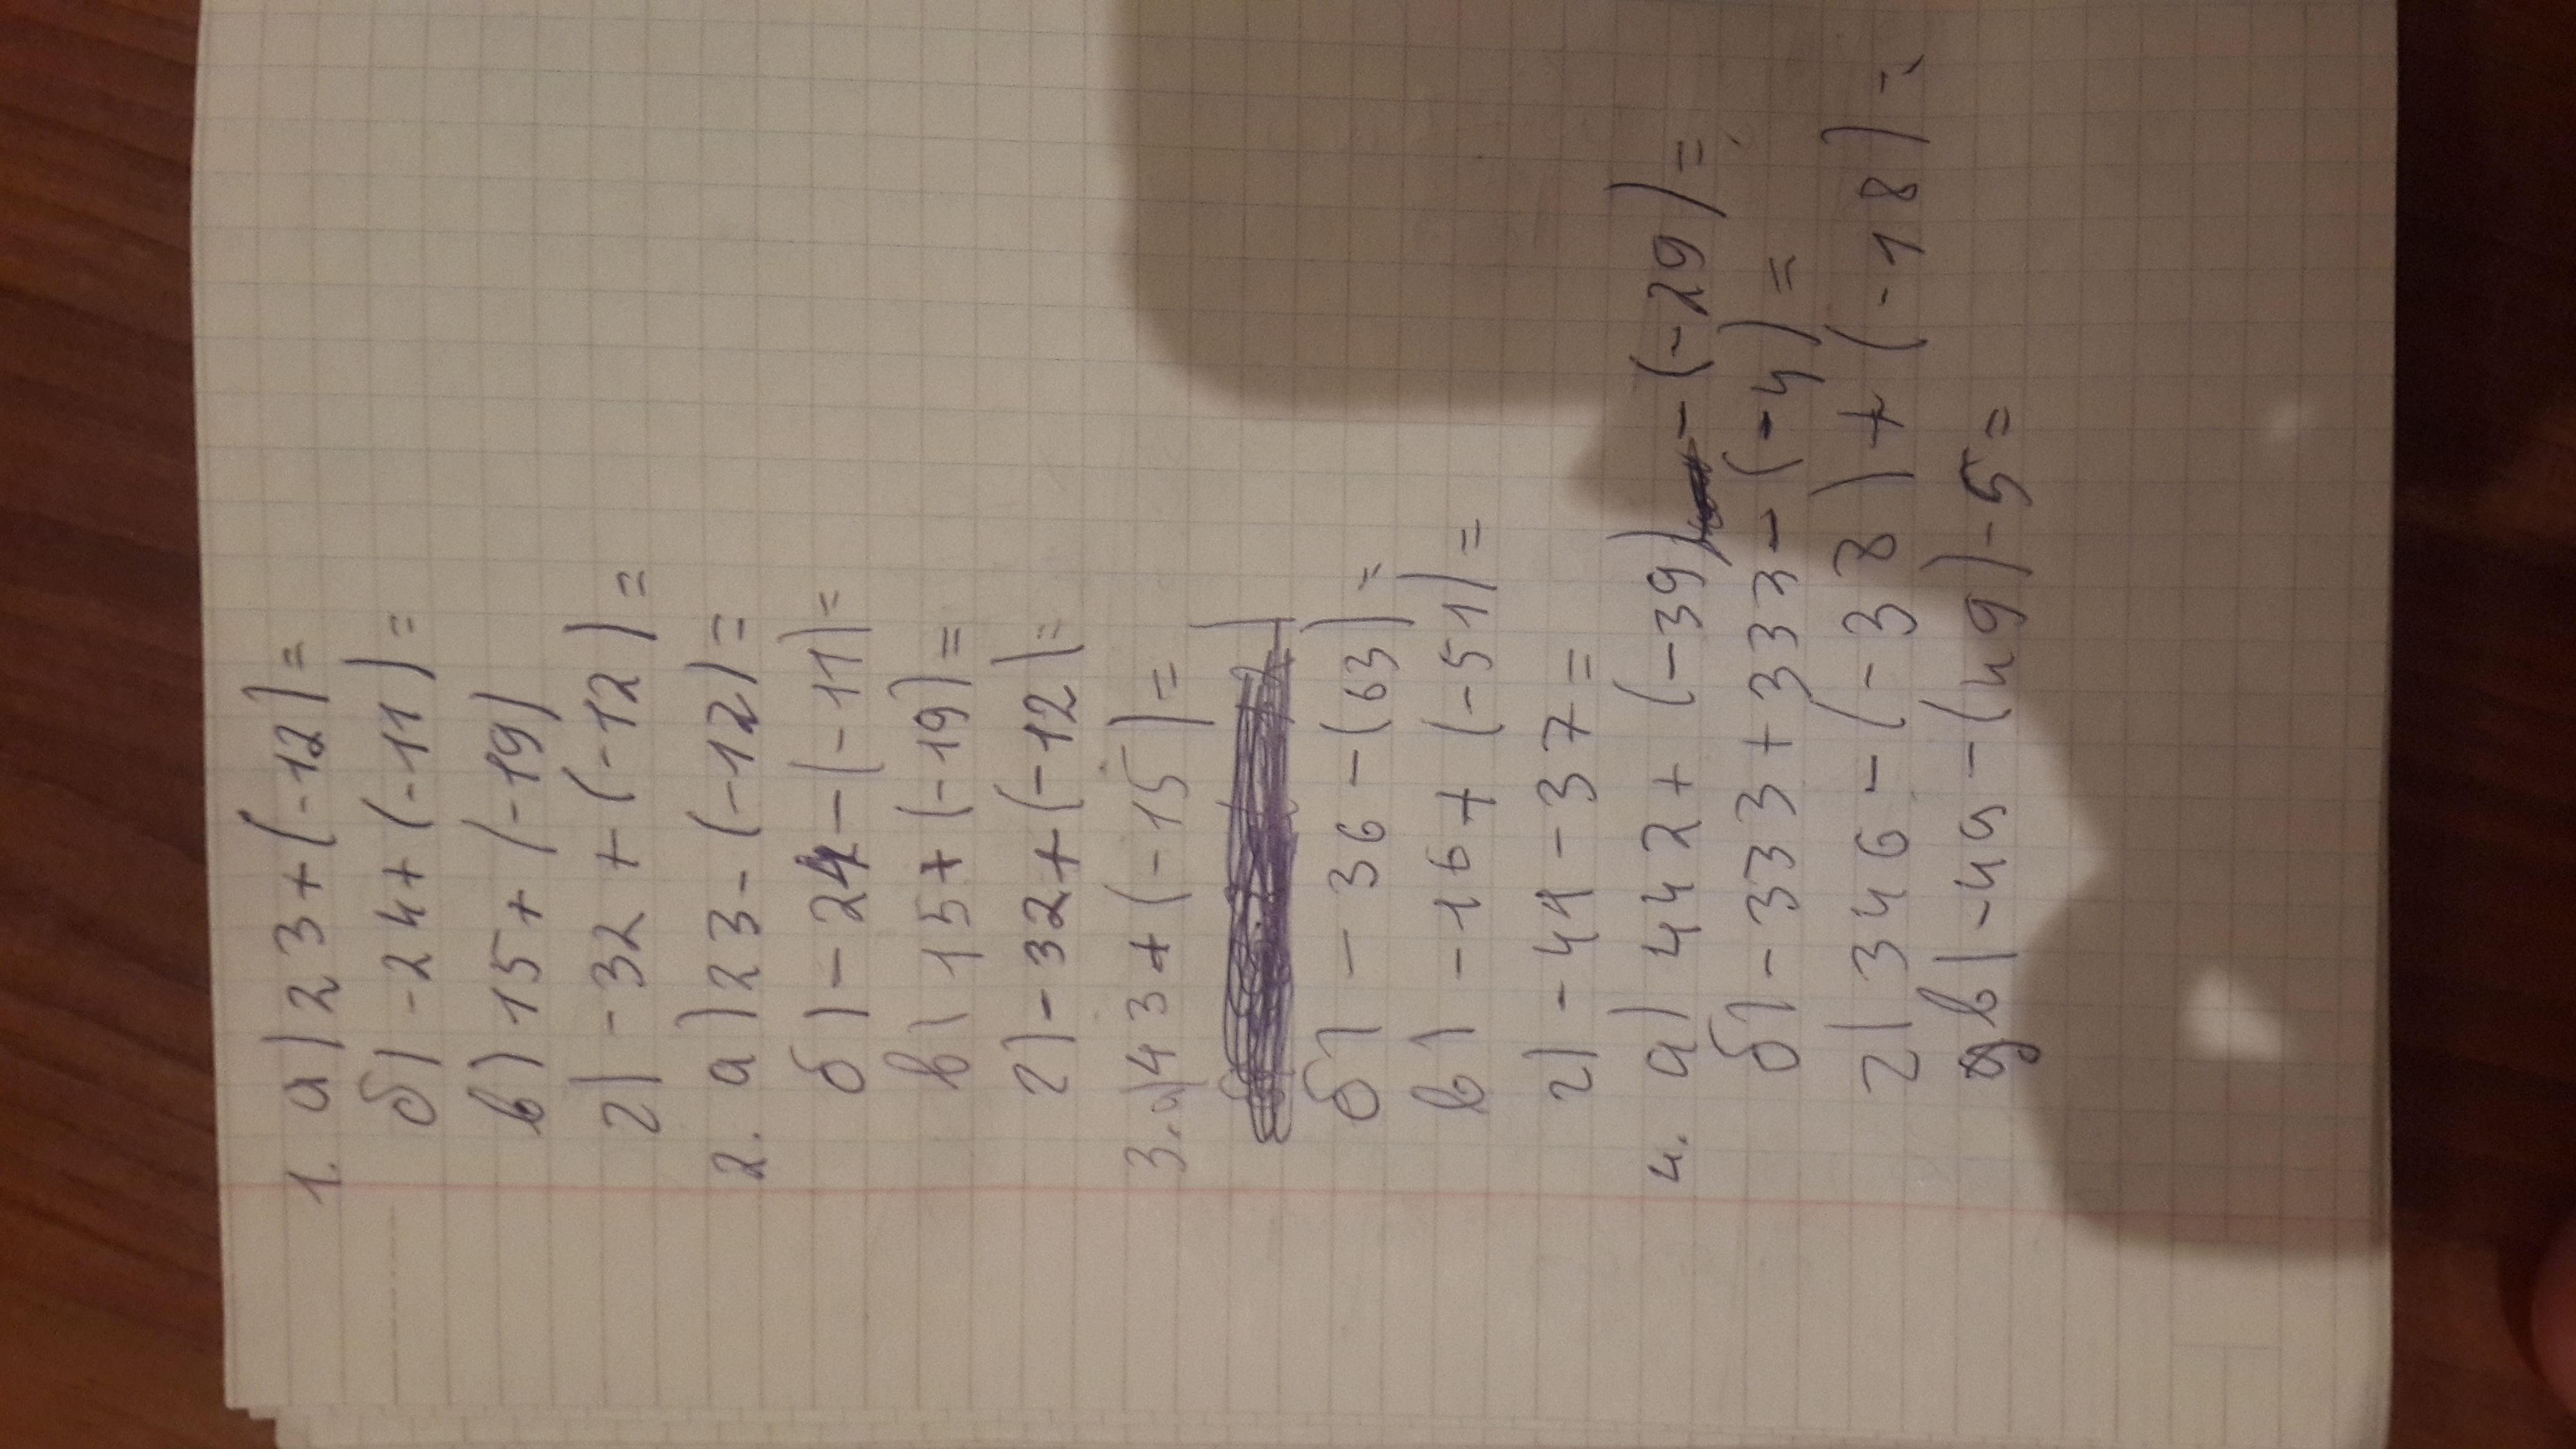 1. а) 23+(-12)=
б) -24+(-11)=
в) 15+(-19)
г) -32+(-12)=
2. а) 23-(-12)=
б) -24-(-11)=
в) 15+(-19)=
г) -32+(-12)=
3. а) 43+(-15)=
б) -36-(63)=
в) -16+(-51)=
г) -41-37=
4. а) 442+(-39)-(-29)=
б) -333+333-(-4)=
г) 346-(-38)+(-18)=
в) -49-(49)-5=